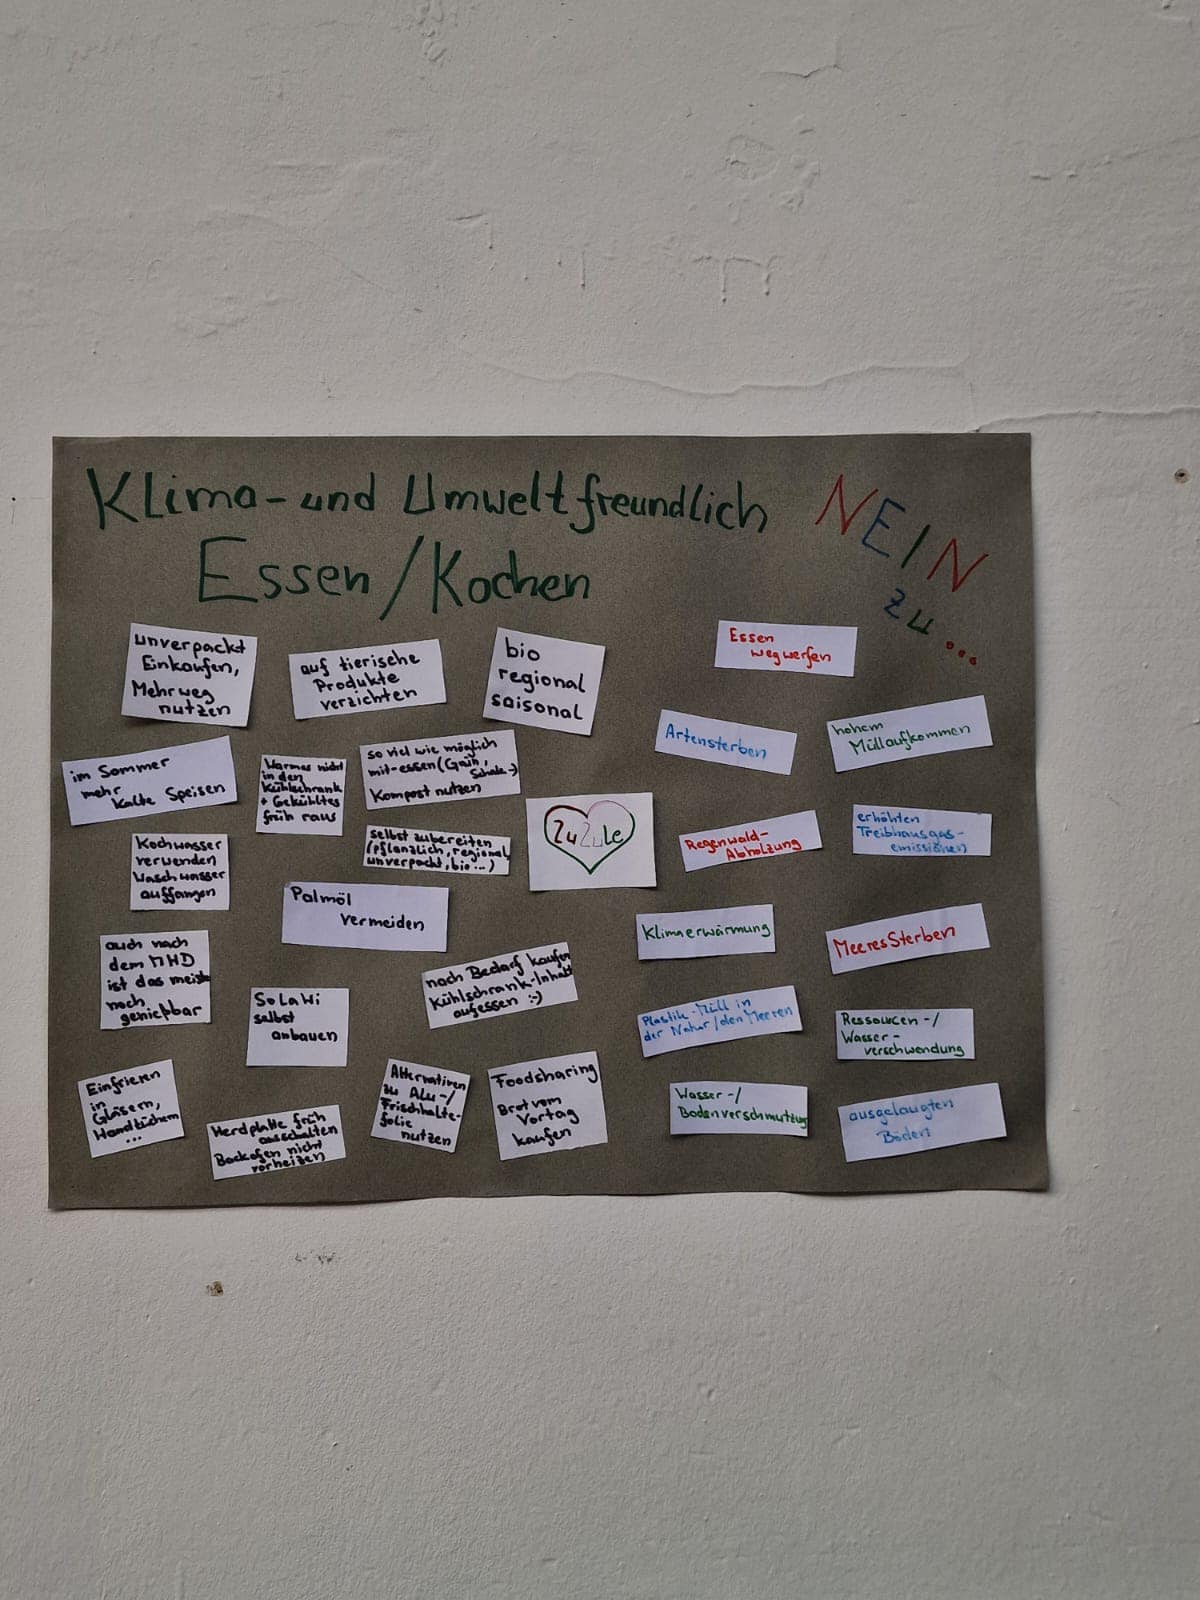 Klima- und Umweltfreundlich
Essen/Kochen
NEIN
zu...
unverpackt
Einkaufen,
Mehrweg
nutzen
auf tierische
Produkte
verzichten
bio
regional
saisonal
im Sommer
mehr
kalte Speisen
Warmes nicht
in den
Kühlschrank
+ Gekühltes
früh raus
so viel wie möglich
mit-essen (Grün,
Schale..)
Kompost nutzen
Kochwasser
verwenden
Waschwasser
auffangen
selbst zubereiten
(pflanzlich, regional,
unverpackt, bio...)
ZuZuLe
Palmöl
vermeiden
auch nach
dem MHD
ist das meiste
noch
genießbar
SoLaWi
selbst
anbauen
nach Bedarf kaufen
Kühlschrank-Inhalt
aufessen :-)
Einfrieren
in
Gläsern,
Handtüchern
...
Herdplatte früh
ausschalten
Backofen nicht
vorheizen
Alternativen
zu Alu-/
Frischhalte-
folie
nutzen
Foodsharing
Brot vom
Vortag
kaufen
Essen
wegwerfen
Artensterben
hohem
Müllaufkommen
Regenwald-
Abholzung
erhöhten
Treibhausgas-
emissionen
Klimaerwärmung
MeeresSterben
Plastik-Müll in
der Natur/den Meeren
Ressourcen-/
Wasser-
verschwendung
Wasser-/
Bodenverschmutzung
ausgelaugten
Böden